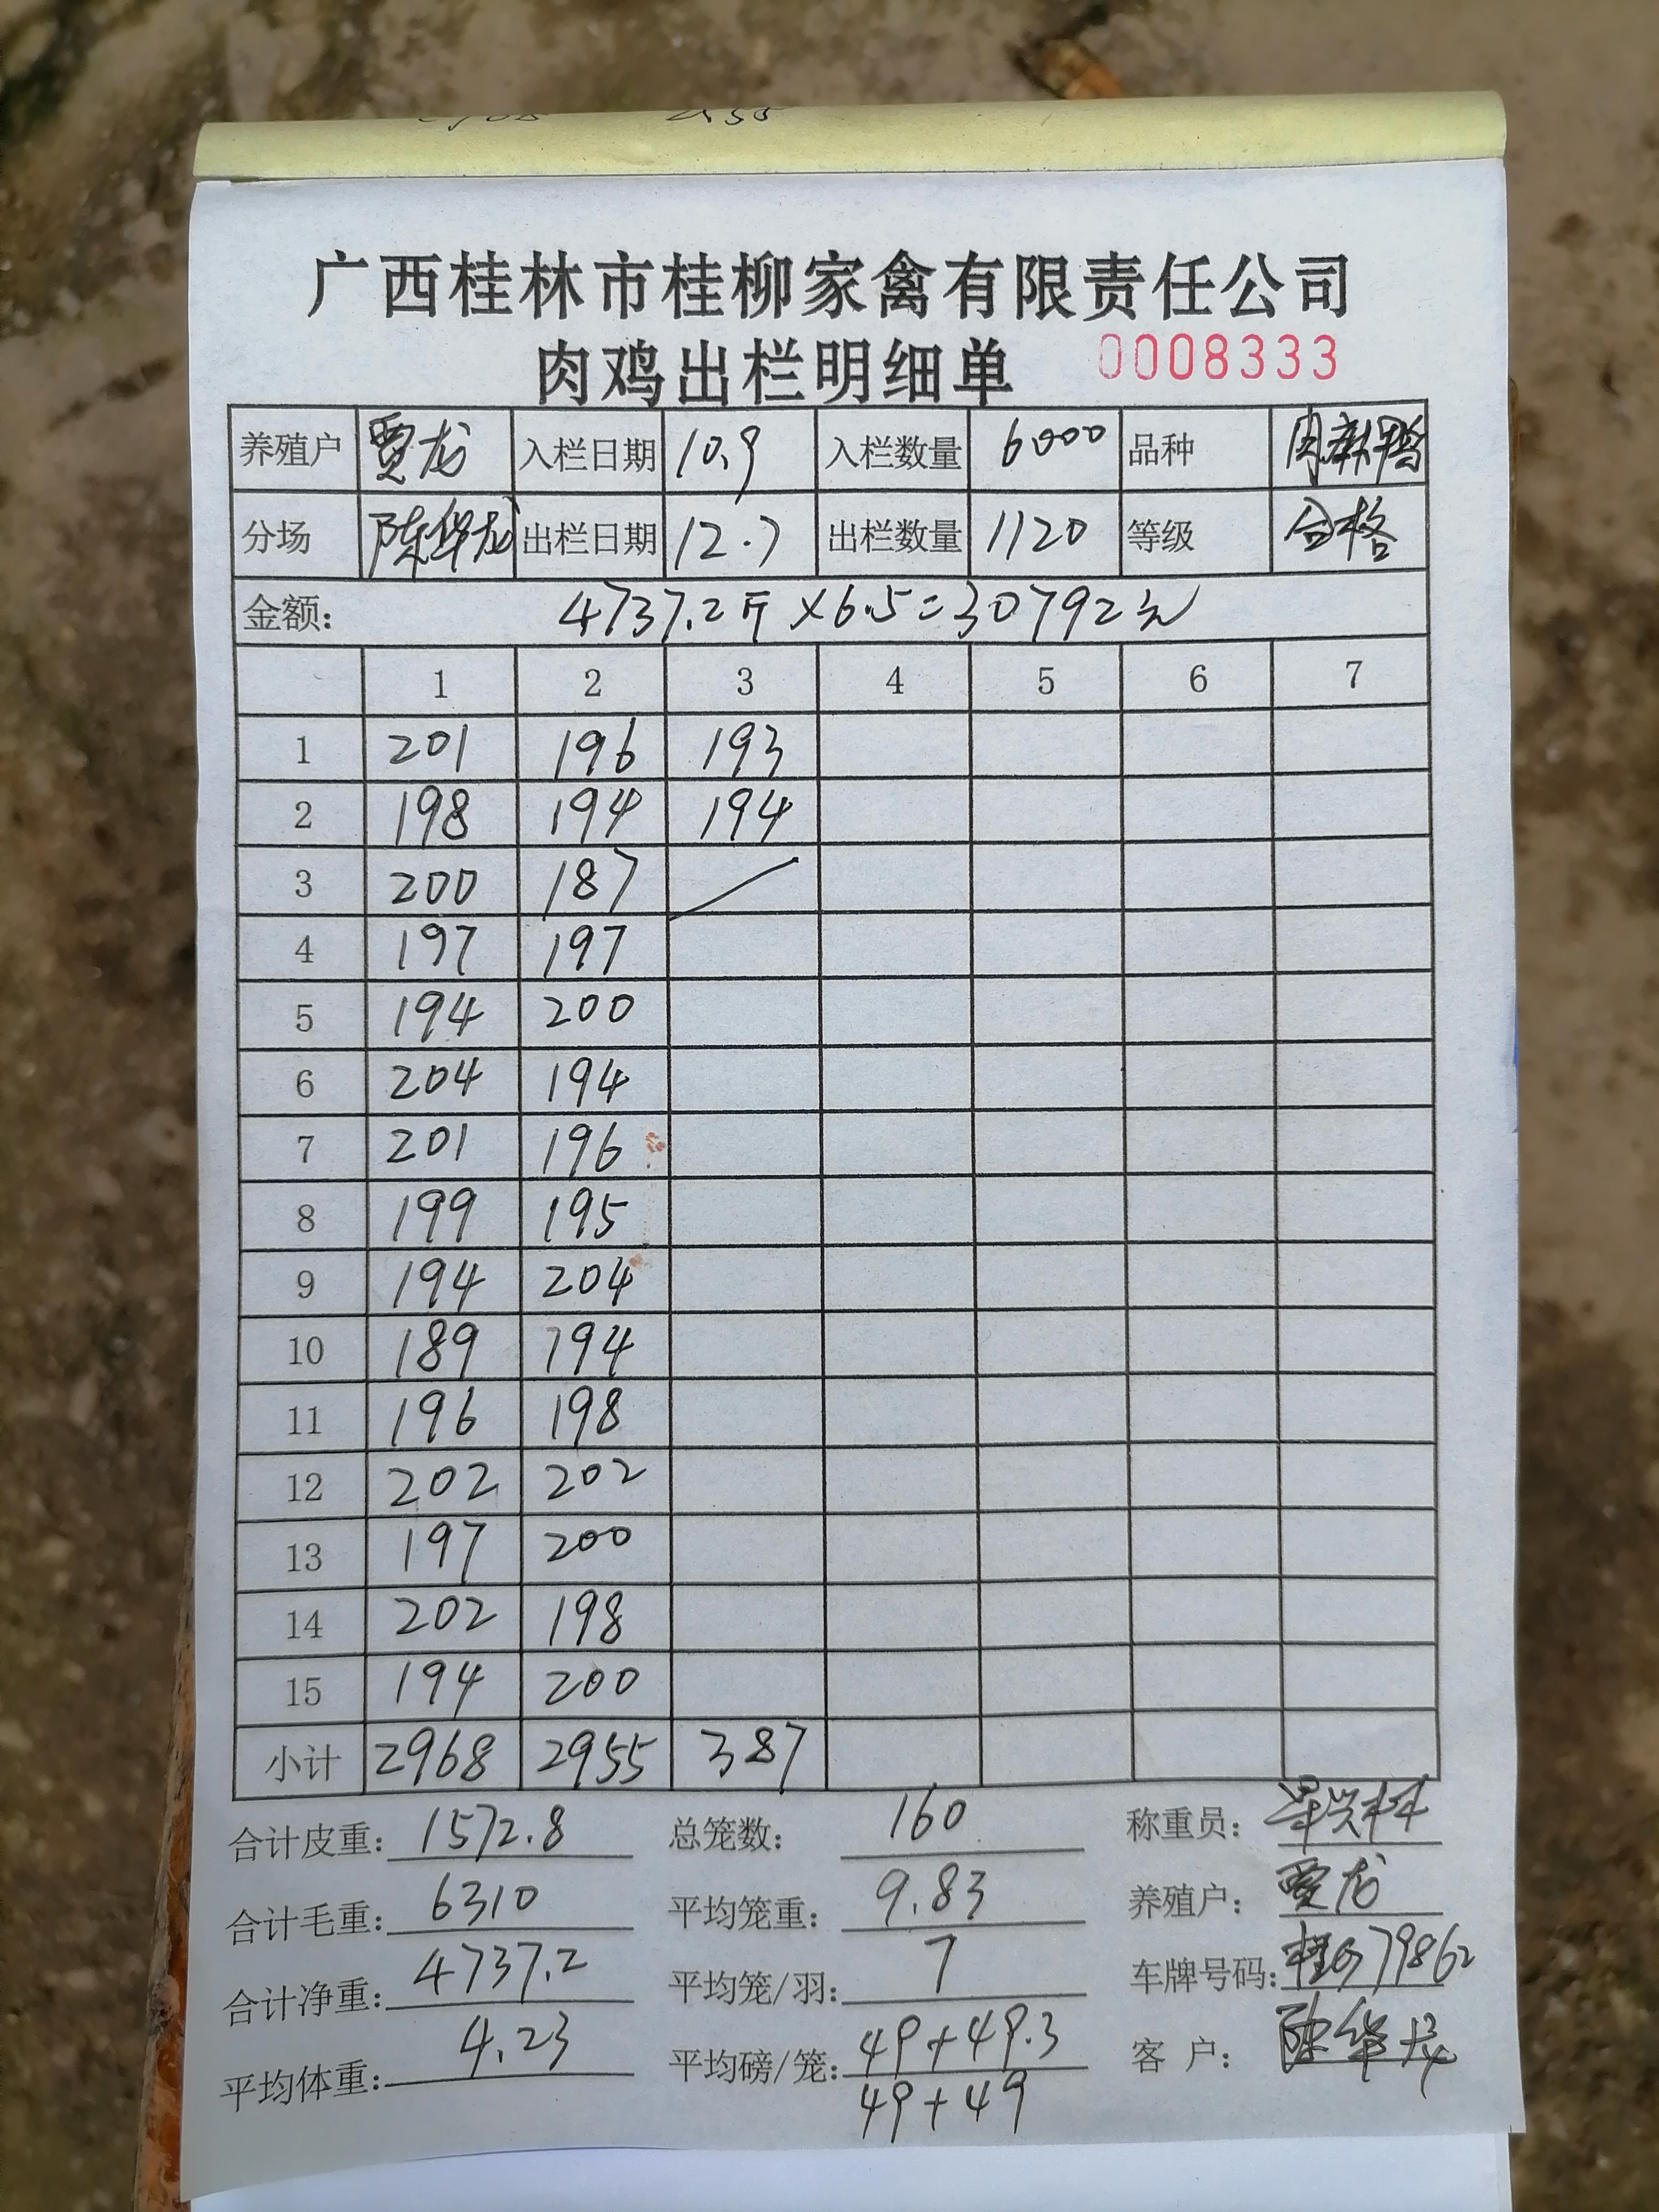 广西桂林市桂柳家禽有限责任公司
肉鸡出栏明细单 0008333
养殖户 贾龙 入栏日期 10.9 入栏数量 6000 品种
分场 陈华龙 出栏日期 12.7 出栏数量 1120 等级 合格
金额: 4737.2斤×6.5=30792元
1 2 3 4 5 6 7
1 201 196 193
2 198 194 194
3 200 187
4 197 197
5 194 200
6 204 194
7 201 196
8 199 195
9 194 204
10 189 194
11 196 198
12 202 202
13 197 200
14 202 198
15 194 200
小计 2968 2955 387
合计皮重: 1572.8 总笼数: 160 称重员:
合计毛重: 6310 平均笼重: 9.83 养殖户: 贾龙
合计净重: 4737.2 平均笼/羽: 7 车牌号码: 79862
平均体重: 4.23 平均磅/笼: 49+49.3 客 户: 陈华龙
49+49